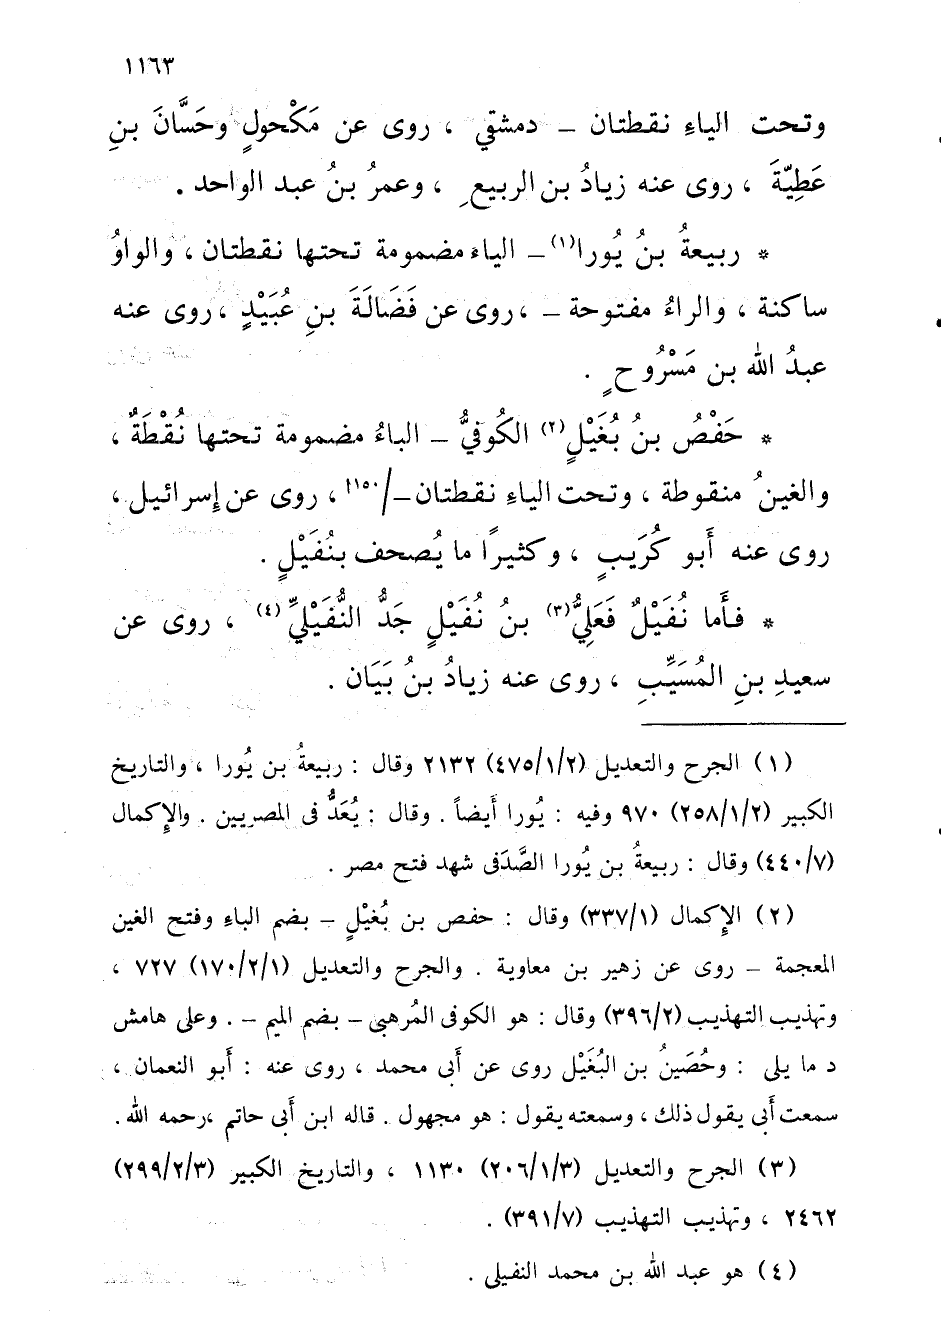 ١١٦٣
وتحت الياءِ نقطتان – دمشقي ، روى عن مَكْحولٍ وحَسَّانَ بنِ
عَطِيّةَ ، روى عنه زيادُ بن الربيعِ ، وعمرُ بنُ عبد الواحد .
* ربيعةُ بنُ يُورا(١) – الياء مضمومة تحتها نقطتان ، والواوُ
ساكنة ، والراءُ مفتوحة – ، روى عن فَضَالَةَ بنِ عُبَيْدٍ ، روى عنه
عبدُ الله بن مَسْرُوحٍ .
* حَفْصُ بنُ بُغَيْلٍ(٢) الكُوفيُّ – الباءُ مضمومة تحتها نُقْطَةٌ ،
والغينُ منقوطة ، وتحت الياءِ نقطتان –/١١٥٠ ، روى عن إسرائيل ،
روى عنه أَبو كُرَيبٍ ، وكثيرًا ما يُصحف بنُفَيْلٍ .
* فأَما نُفَيْلٌ فَعَلِيُّ(٣) بنُ نُفَيْلٍ جَدُّ النُّفَيْلِيِّ(٤) ، روى عن
سعيدِ بنِ المُسَيِّبِ ، روى عنه زيادُ بنُ بَيَان .
(١) الجرح والتعديل (٤٧٥/١/٢) ٢١٣٢ وقال : ربيعةُ بن يُورا ، والتاريخ
الكبير (٢٥٨/١/٢) ٩٧٠ وفيه : يُورا أيضاً . وقال : يُعَدُّ فى المصريين . والإكمال
(٤٤٠/٧) وقال : ربيعةُ بن يُورا الصَّدَفى شهد فتح مصر .
(٢) الإكمال (٣٣٧/١) وقال : حفص بن بُغيْلٍ – بضم الباءِ وفتح الغين
المعجمة – روى عن زهير بن معاوية . والجرح والتعديل (١٧٠/٢/١) ٧٢٧ ،
وتهذيب التهذيب (٣٩٦/٢) وقال : هو الكوفى المُرهبى – بضم الميم – . وعلى هامش
د ما يلى : وحُصَينُ بن البُغَيْل روى عن أبى محمد ، روى عنه : أبو النعمان ،
سمعت أبى يقول ذلك ، وسمعته يقول : هو مجهول . قاله ابن أبى حاتم ، رحمه الله .
(٣) الجرح والتعديل (٢٠٦/١/٣) ١١٣٠ ، والتاريخ الكبير (٢٩٩/٢/٣)
٢٤٦٢ ، وتهذيب التهذيب (٣٩١/٧) .
(٤) هو عبد الله بن محمد النفيلى .